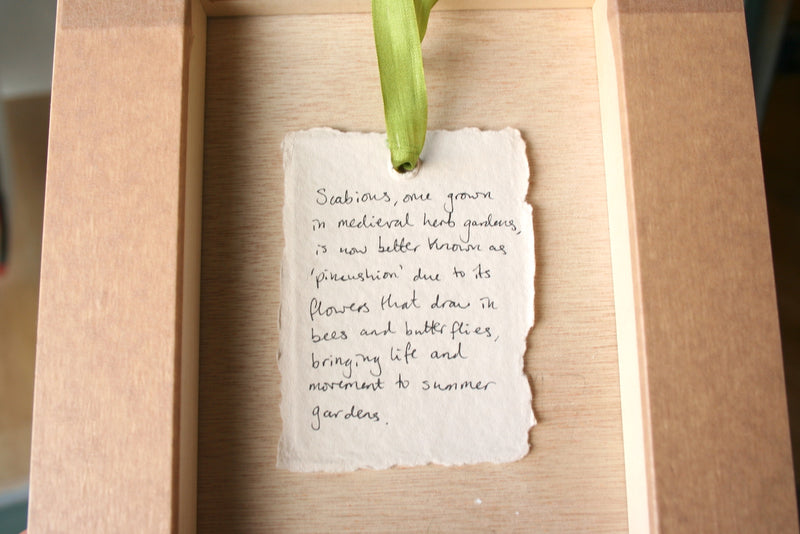 Scabious, one grown
in medieval herb gardens,
is now better known as
'pincushion' due to its
flowers that draw in
bees and butterflies,
bringing life and
movement to summer
gardens.